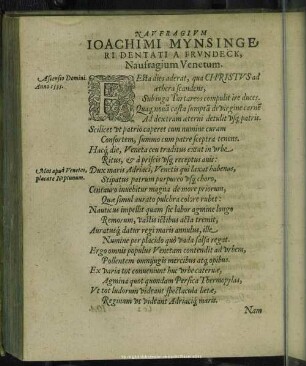 NAVFRAGIVM
IOACHIMI MYNSINGE,
RI DENTATI A FRVNDECK,
Naufragium Venetum.
Ascensio Domini
Anno 1535.
FEsta dies aderat, qua CHRISTVS ad
æthera scandens,
Sub iuga Tartareos compulit ire duces.
Quaq; modò casta sumptā de virgine carnē
Ad dextram æterni detulit vsq; patris.
Scilicet vt patrio caperet cum numine curam
Consortem, summo cum patre sceptra tenens.
Hacq; die, Veneta ceu traditus extat in vrbe
Ritus, & à priscis vsq; receptus auis:
Ritus apud Venetos,
placare Neptunum.
Dux maris Adriaci, Venetis qui laxat habenas,
Stipatus patrum purpureoq; choro,
Centauro inuehitur magna de more priorum,
Quæ simul aurato pulchra colore rubet:
Nauticus impellit quam sic labor agmine longo
Remorum, vastis ictibus acta tremit,
Auratusq; datur regi maris annulus, ille
Numine per placido quò vada salsa regat.
Ergo omnis populus Venetam contendit ad vrbem,
Pollentem eximijs mercibus atq; opibus.
Ex varia tot conueniunt huc vrbe cateruæ,
Agmina quot quondam Persica Thermopylas,
Vt tot ludorum videant spectacula læta,
Reginam vt videant Adriaciq; maris.
Nam